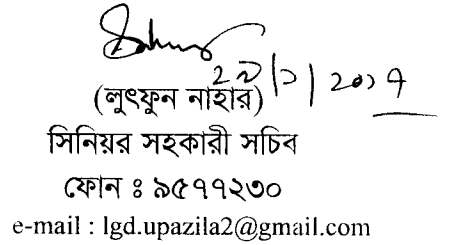 (লুৎফুন নাহার)
সিনিয়র সহকারী সচিব
ফোন ঃ ৯৫৭৭২৩০
e-mail : lgd.upazila2@gmail.com